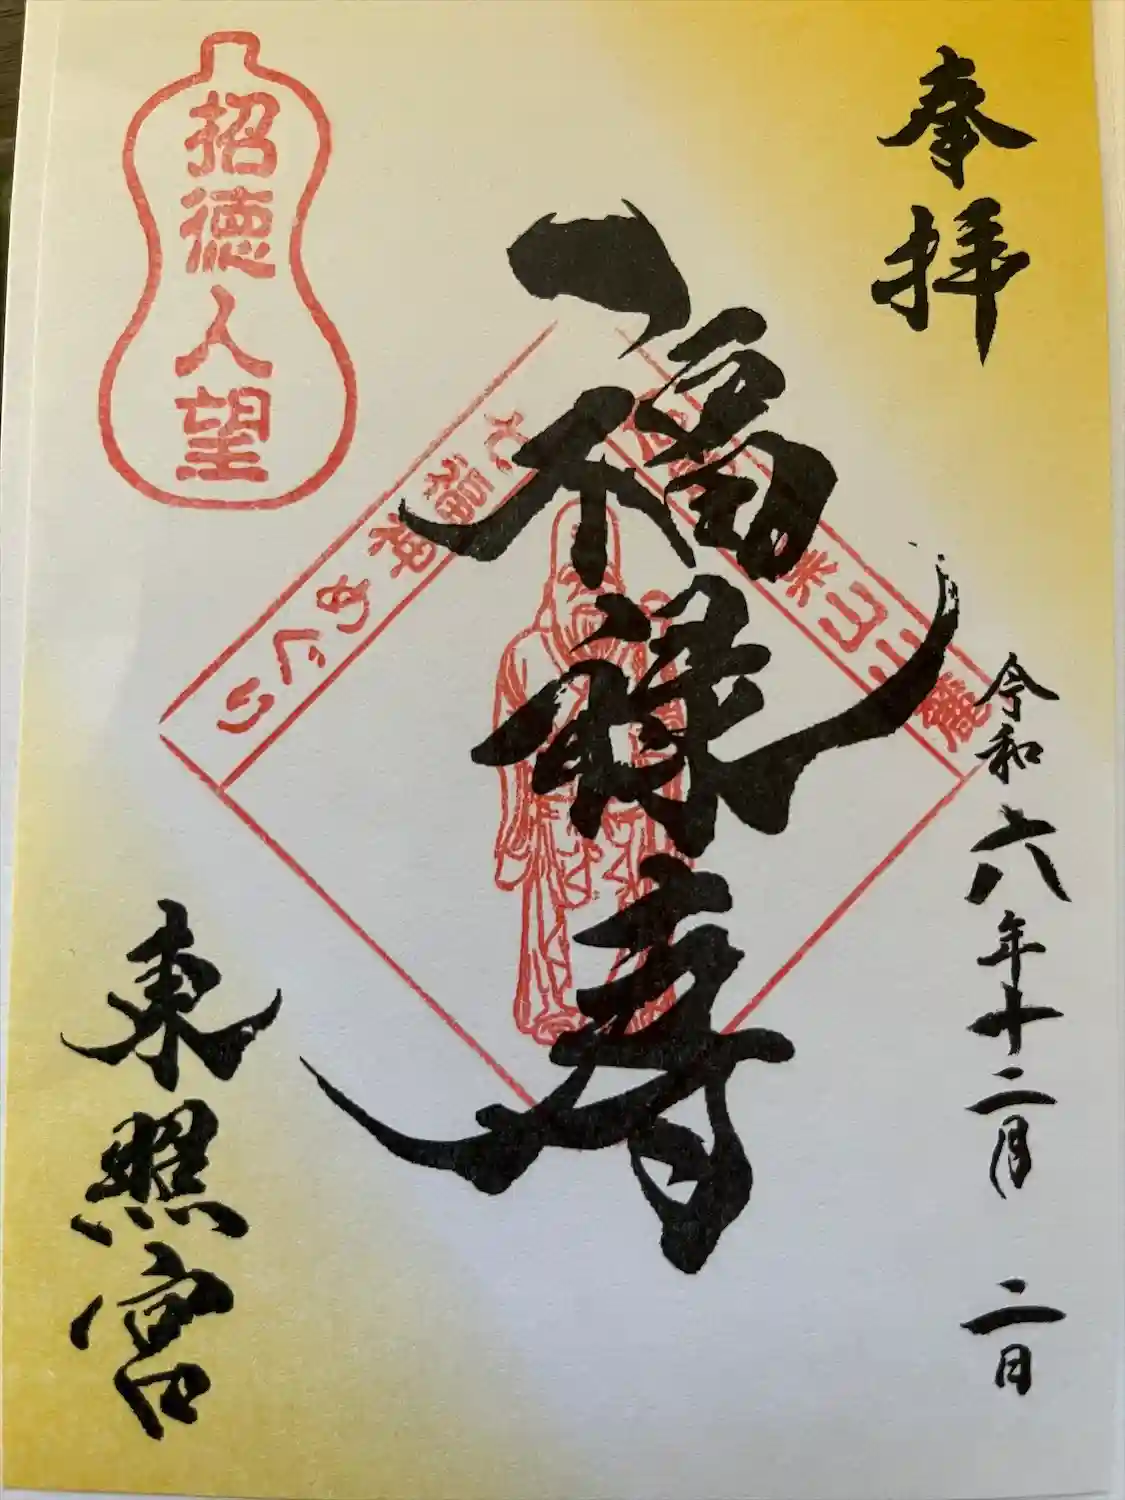 奉拝
令和六年十二月二日
福禄寿
山麓
七福神めぐり
招徳人望
東照宮